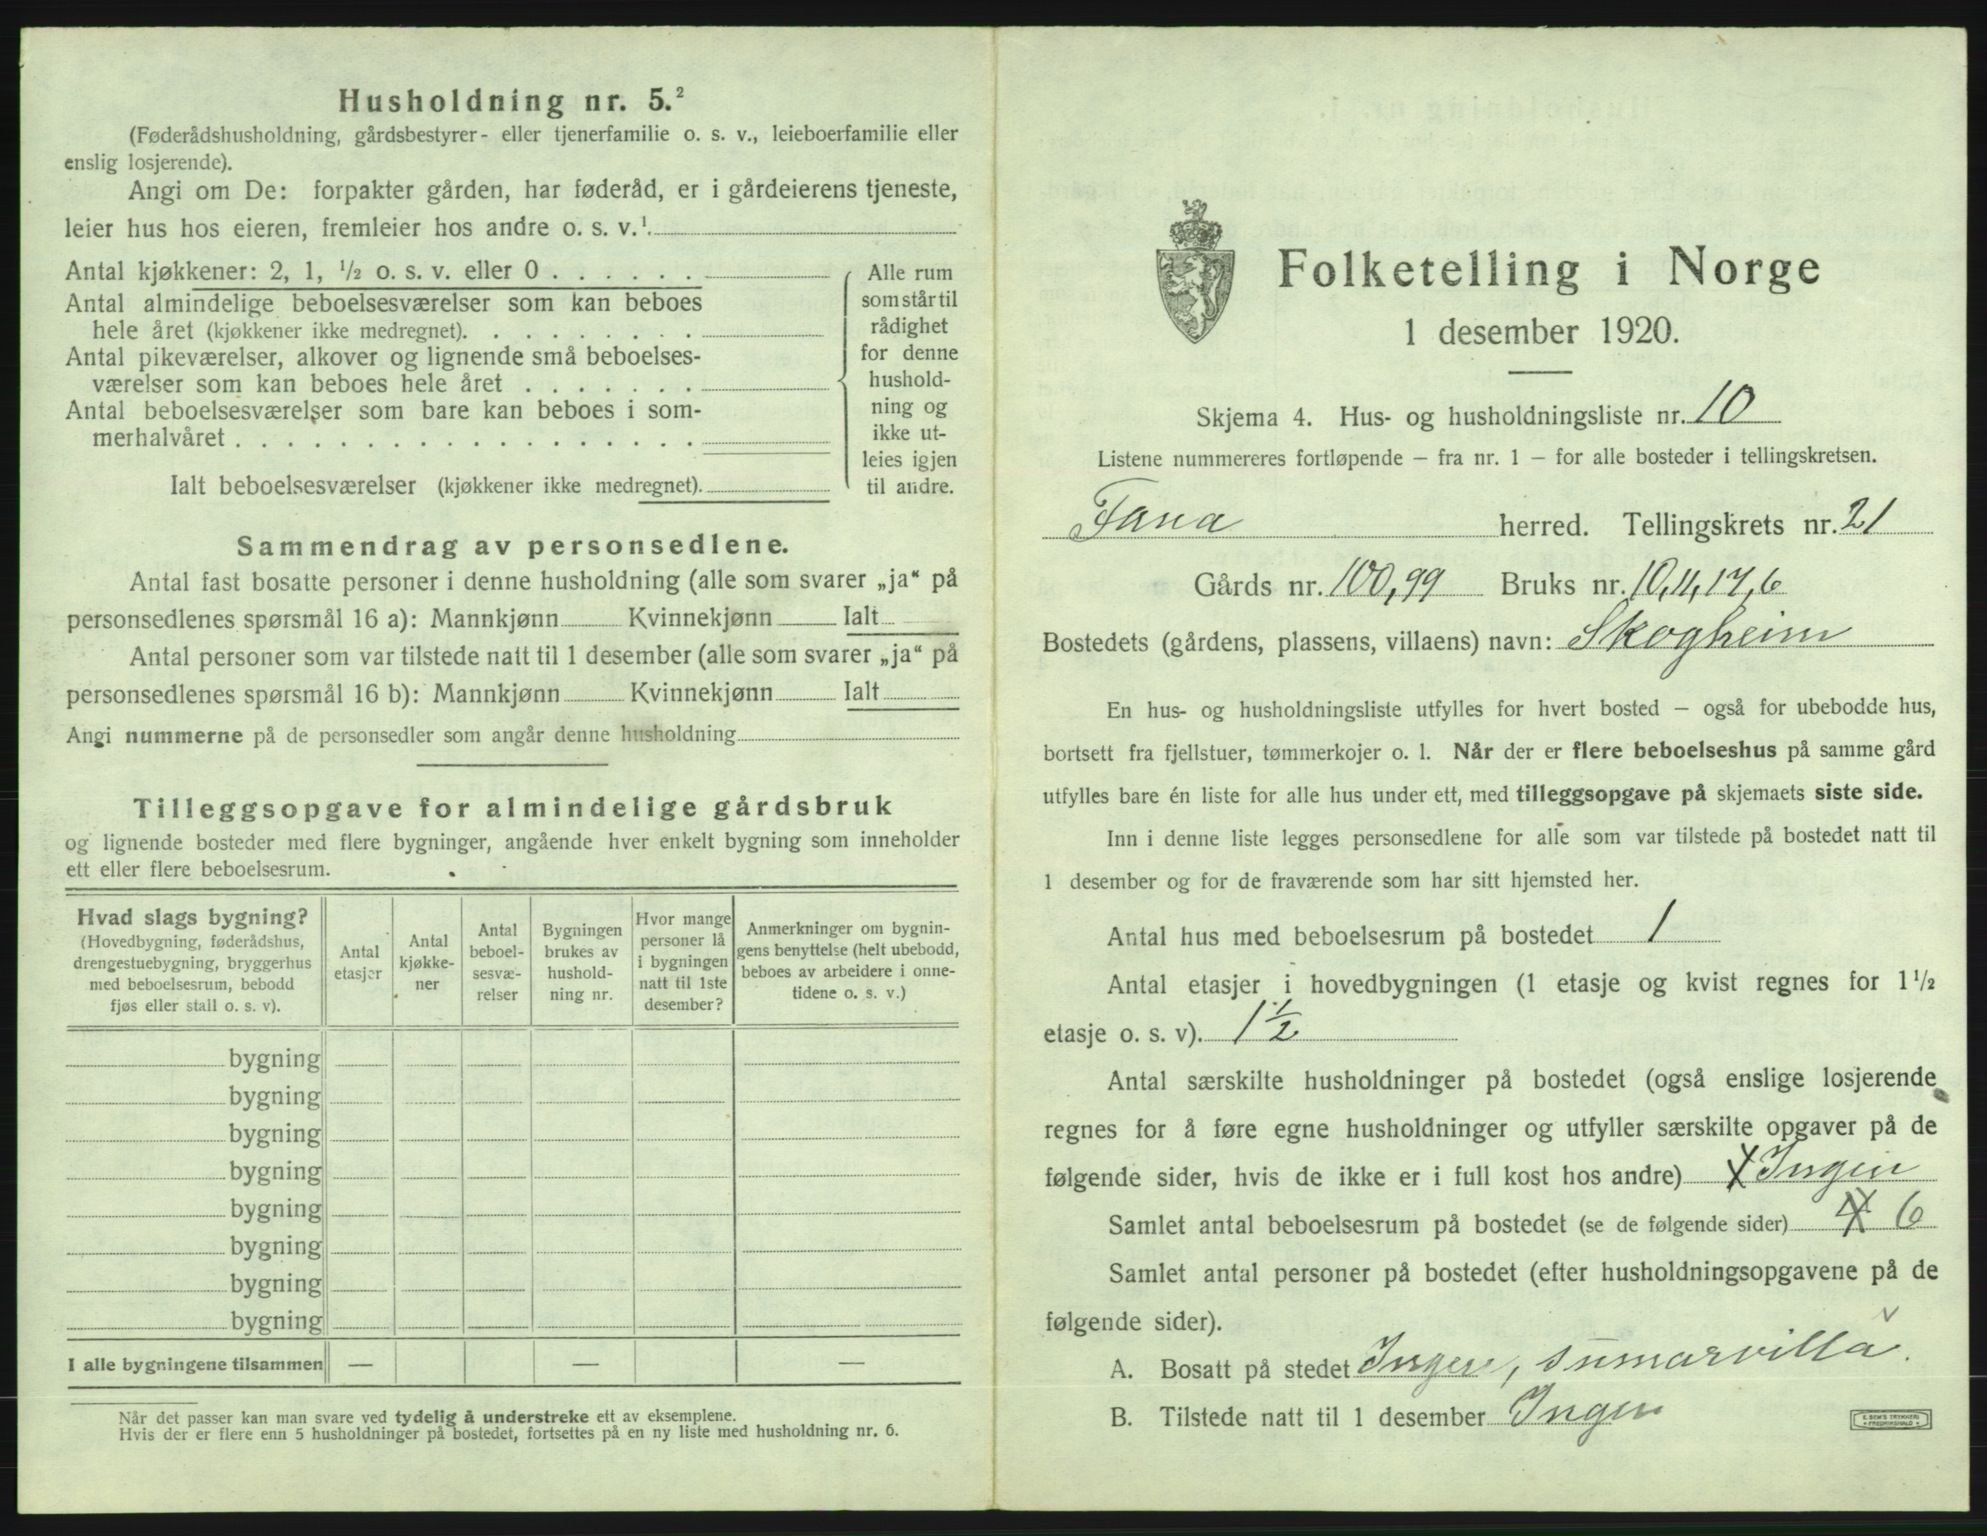 Husholdning nr. 5.²
(Føderådshusholdning, gårdsbestyrer- eller tjenerfamilie o. s. v., leieboerfamilie eller
enslig losjerende).
Angi om De: forpakter gården, har føderåd, er i gårdeierens tjeneste,
leier hus hos eieren, fremleier hos andre o. s. v.¹
Antal kjøkkener: 2, 1, ½ o. s. v. eller 0
Antal almindelige beboelsesværelser som kan beboes
hele året (kjøkkener ikke medregnet).
Antal pikeværelser, alkover og lignende små beboelses-
værelser som kan beboes hele året
Antal beboelsesværelser som bare kan beboes i som-
merhalvåret
Ialt beboelsesværelser (kjøkkener ikke medregnet).
Alle rum
som står til
rådighet
for denne
hushold-
ning og
ikke ut-
leies igjen
til andre.
Sammendrag av personsedlene.
Antal fast bosatte personer i denne husholdning (alle som svarer „ja“ på
personsedlenes spørsmål 16 a): Mannkjønn Kvinnekjønn Ialt
Antal personer som var tilstede natt til 1 desember (alle som svarer „ja“ på
personsedlenes spørsmål 16 b): Mannkjønn Kvinnekjønn Ialt
Angi nummerne på de personsedler som angår denne husholdning
Tilleggsopgave for almindelige gårdsbruk
og lignende bosteder med flere bygninger, angående hver enkelt bygning som inneholder
ett eller flere beboelsesrum.
Hvad slags bygning?
(Hovedbygning, føderådshus,
drengestuebygning, bryggerhus
med beboelsesrum, bebodd
fjøs eller stall o. s. v).
Antal
etasjer
Antal
kjøkke-
ner
Antal
beboel-
sesvæ-
relser
Bygningen
brukes av
hushold-
ning nr.
Hvor mange
personer lå
i bygningen
natt til 1ste
desember?
Anmerkninger om bygnin-
gens benyttelse (helt ubebodd,
beboes av arbeidere i onne-
tidene o. s. v.)
bygning
bygning
bygning
bygning
bygning
bygning
bygning
bygning
I alle bygningene tilsammen — — —
Når det passer kan man svare ved tydelig å understreke ett av eksemplene.
Hvis der er flere enn 5 husholdninger på bostedet, fortsettes på en ny liste med husholdning nr. 6.
Folketelling i Norge
1 desember 1920.
Skjema 4. Hus- og husholdningsliste nr. 10
Listene nummereres fortløpende — fra nr. 1 — for alle bosteder i tellingskretsen.
Fana herred. Tellingskrets nr. 21
Gårds nr. 100, 99 Bruks nr. 10, 11, 17, 6
Bostedets (gårdens, plassens, villaens) navn: Skogheim
En hus- og husholdningsliste utfylles for hvert bosted — også for ubebodde hus,
bortsett fra fjellstuer, tømmerkojer o. l. Når der er flere beboelseshus på samme gård
utfylles bare én liste for alle hus under ett, med tilleggsopgave på skjemaets siste side.
Inn i denne liste legges personsedlene for alle som var tilstede på bostedet natt til
1 desember og for de fraværende som har sitt hjemsted her.
Antal hus med beboelsesrum på bostedet 1
Antal etasjer i hovedbygningen (1 etasje og kvist regnes for 1½
etasje o. s. v). 1½
Antal særskilte husholdninger på bostedet (også enslige losjerende
regnes for å føre egne husholdninger og utfyller særskilte opgaver på de
følgende sider, hvis de ikke er i full kost hos andre) Ingen
Samlet antal beboelsesrum på bostedet (se de følgende sider) 6
Samlet antal personer på bostedet (efter husholdningsopgavene på de
følgende sider).
A. Bosatt på stedet Ingen, sumarvilla.
B. Tilstede natt til 1 desember Ingen
E. SEM'S TRYKKERI
FREDRIKSHALD